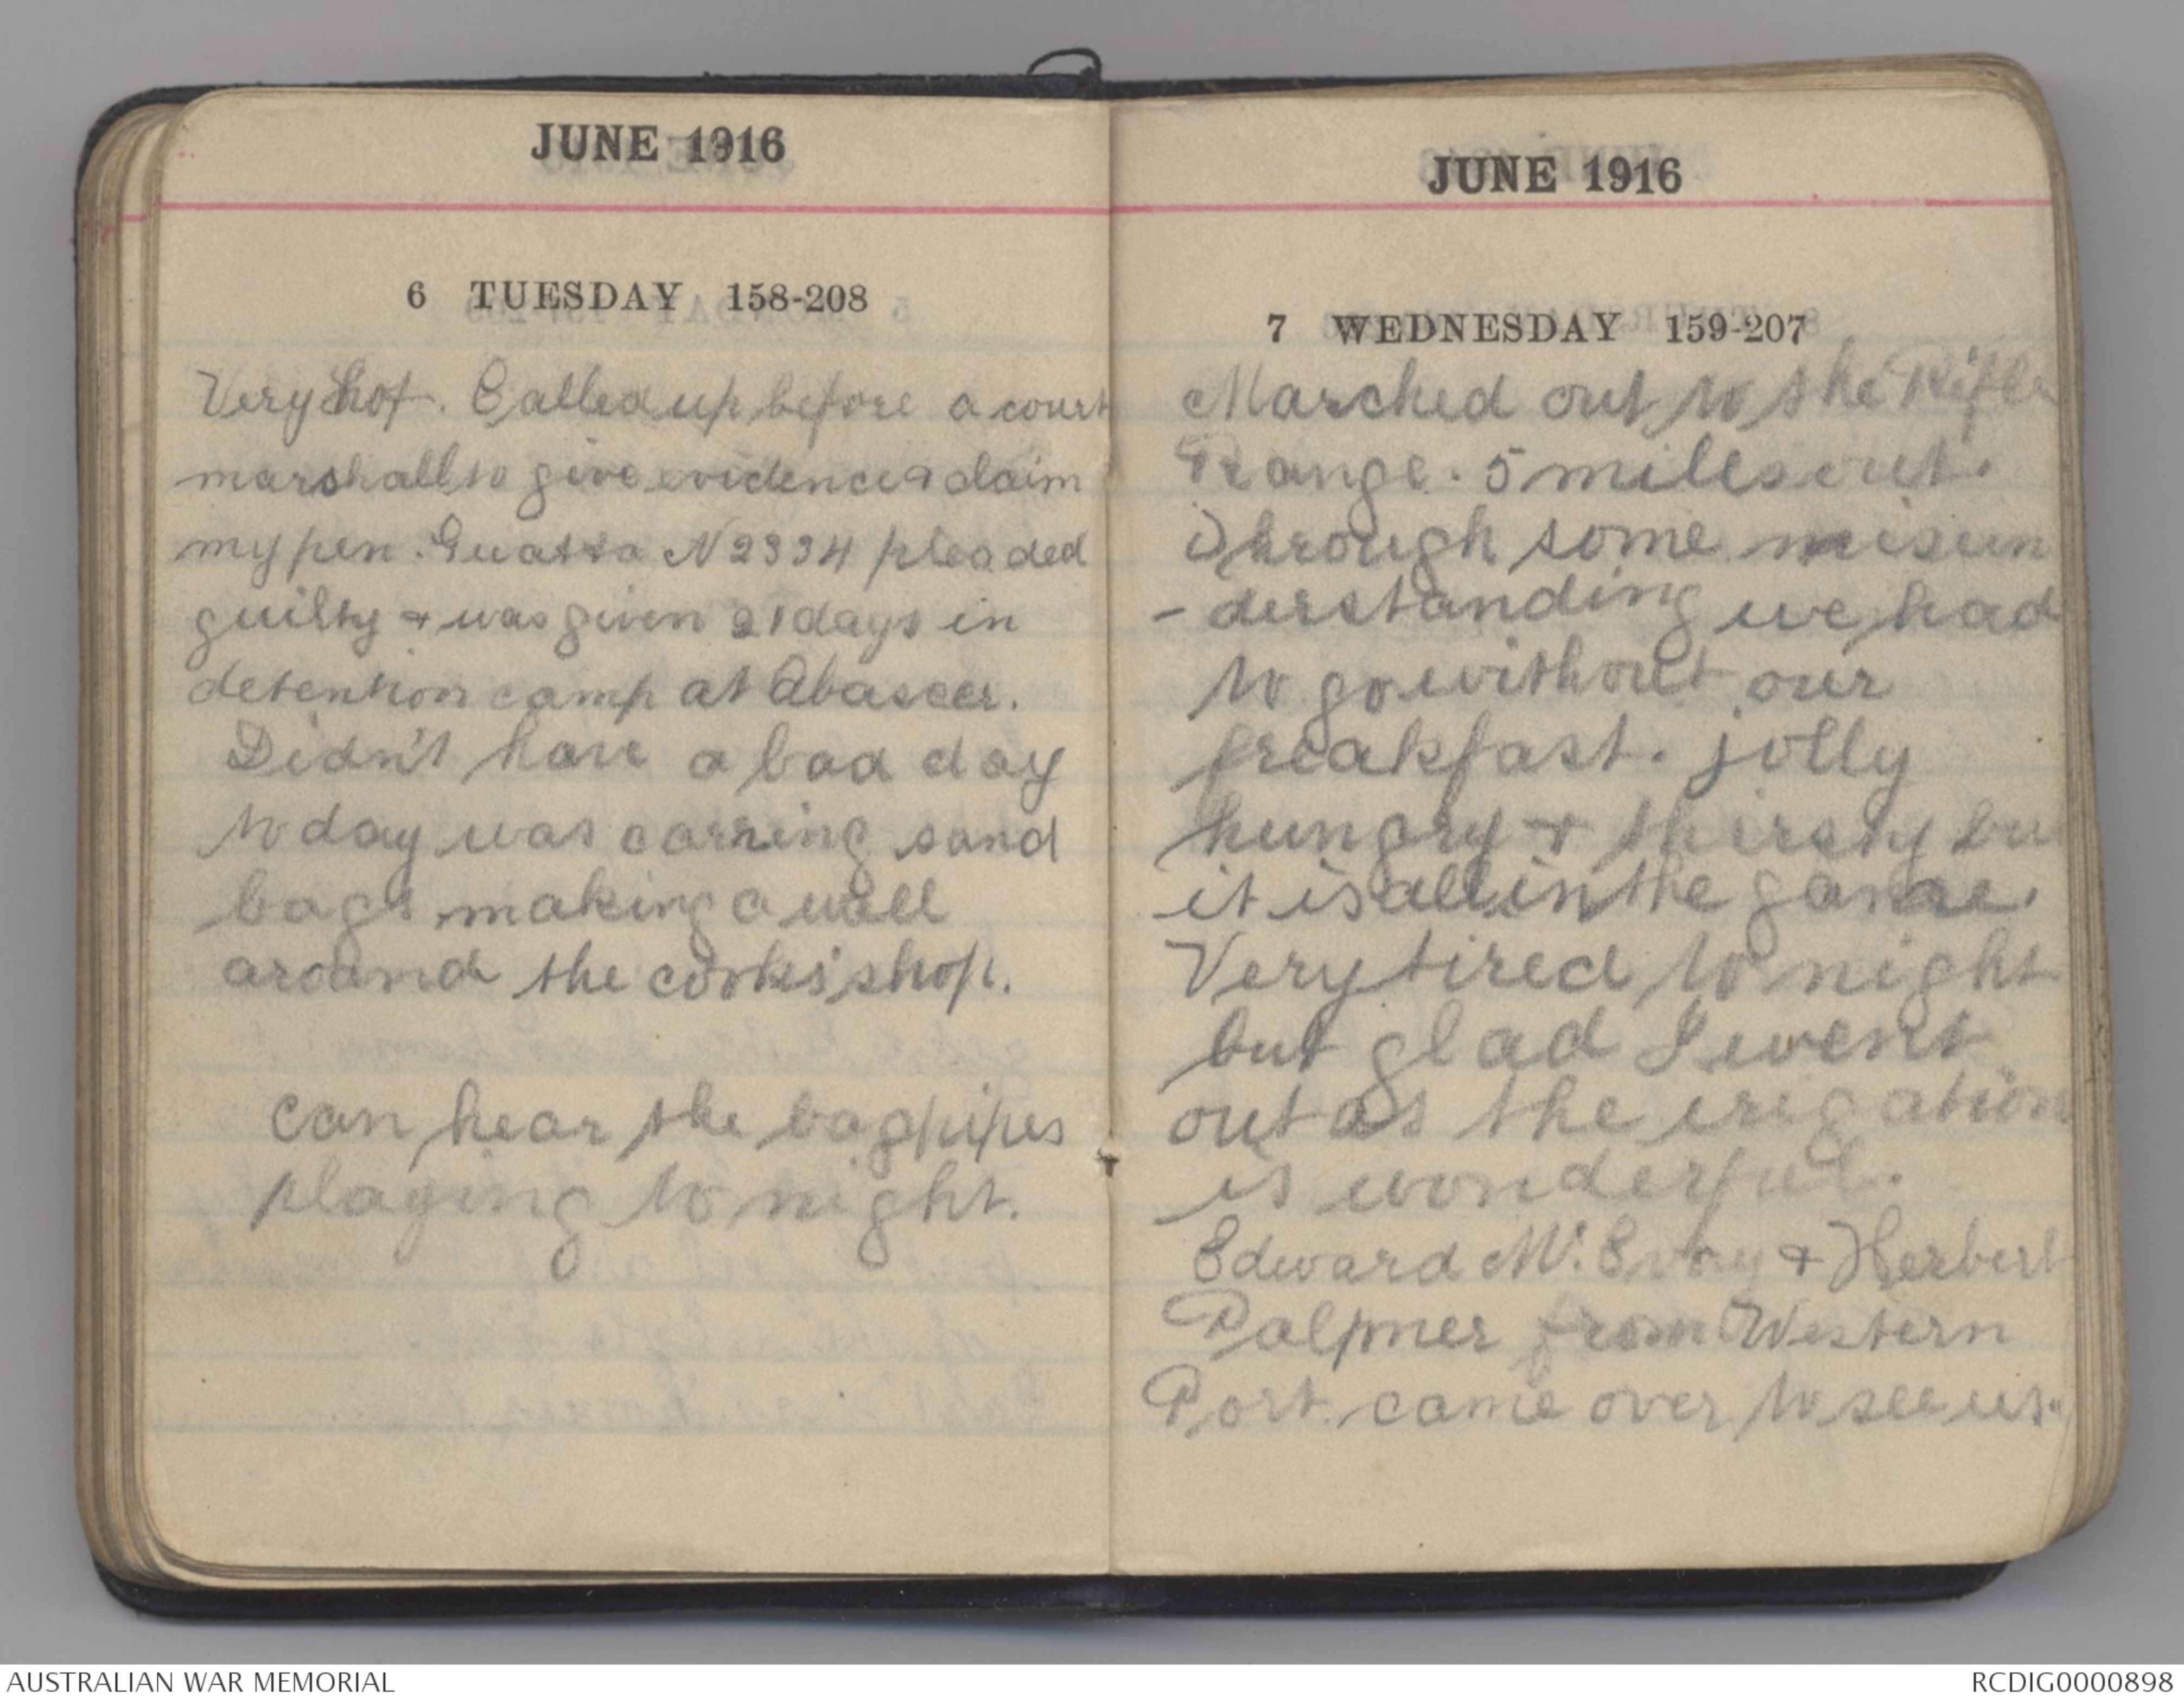 JUNE 1916
6 TUESDAY 158-208
Very hot. Called up before a court
marshall to give evidence & claim
my pen. N 2334 pleaded
guilty & was given 21 days in
detention camp at Abaseer.
Didn't have a bad day
to day was carring sand
bags making a wall
around the cooks' shop.
can hear the bagpipes
playing to night.
JUNE 1916
7 WEDNESDAY 159-207
Marched out to the Rifle
Range. 5 miles out.
Through some misun
- derstanding we had
to go without our
breakfast. jolly
hungry & thirsty bu
it is all in the game.
Very tired to night
but glad I went
out as the irigation
is wonderful.
Edward Mc. Evoy & Herbert
Palpmer from Western
Port. came over to see us.
AUSTRALIAN WAR MEMORIAL
RCDIG0000898